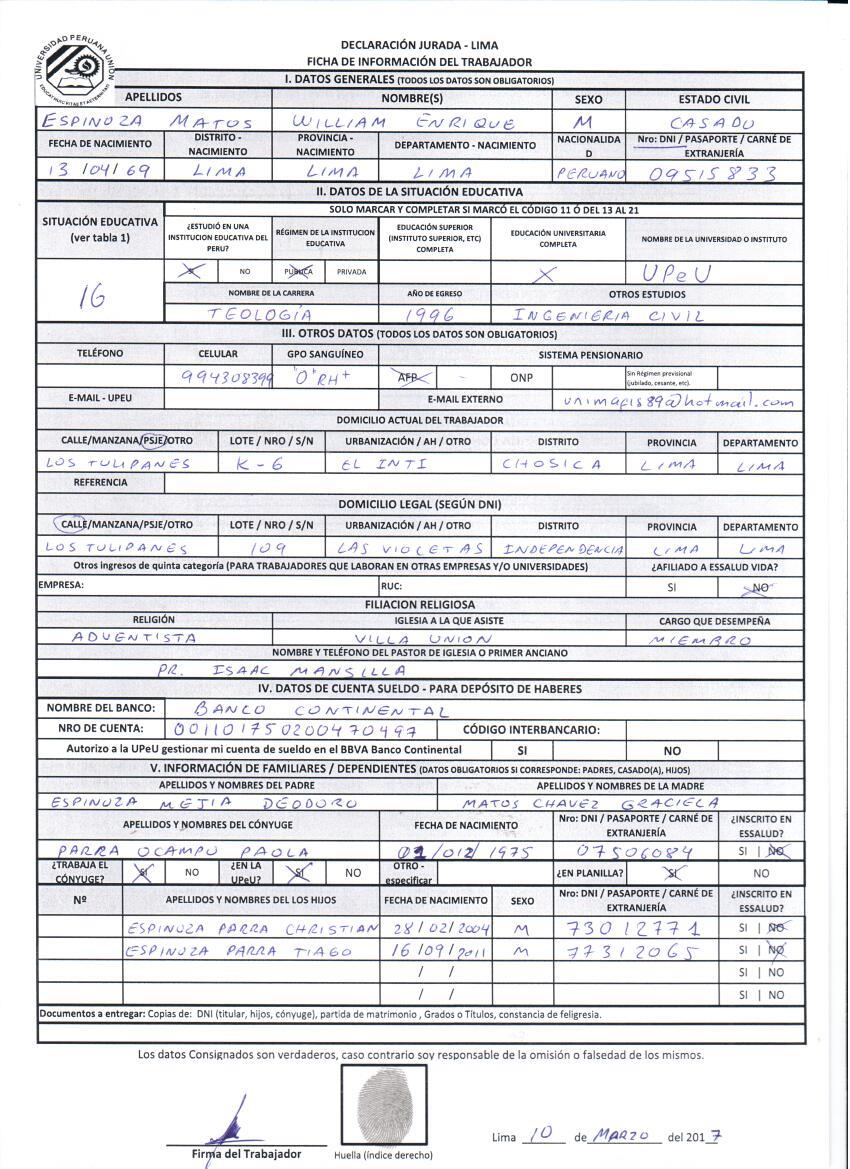 UNIVERSIDAD PERUANA UNIÓN
DECLARACIÓN JURADA - LIMA
FICHA DE INFORMACIÓN DEL TRABAJADOR
I. DATOS GENERALES (TODOS LOS DATOS SON OBLIGATORIOS)
APELLIDOS NOMBRE(S) SEXO ESTADO CIVIL
ESPINOZA MATOS WILLIAM ENRIQUE M CASADO
FECHA DE NACIMIENTO DISTRITO - NACIMIENTO PROVINCIA - NACIMIENTO DEPARTAMENTO - NACIMIENTO NACIONALIDAD Nro: DNI / PASAPORTE / CARNÉ DE EXTRANJERÍA
13 /04/ 69 LIMA LIMA LIMA PERUANO 09515833
II. DATOS DE LA SITUACIÓN EDUCATIVA
SOLO MARCAR Y COMPLETAR SI MARCÓ EL CÓDIGO 11 Ó DEL 13 AL 21
SITUACIÓN EDUCATIVA (ver tabla 1) ¿ESTUDIÓ EN UNA INSTITUCION EDUCATIVA DEL PERU? RÉGIMEN DE LA INSTITUCION EDUCATIVA EDUCACIÓN SUPERIOR (INSTITUTO SUPERIOR, ETC) COMPLETA EDUCACIÓN UNIVERSITARIA COMPLETA NOMBRE DE LA UNIVERSIDAD O INSTITUTO
16 SI NO PUBLICA PRIVADA X UPeU
NOMBRE DE LA CARRERA AÑO DE EGRESO OTROS ESTUDIOS
TEOLOGÍA 1996 INGENIERIA CIVIL
III. OTROS DATOS (TODOS LOS DATOS SON OBLIGATORIOS)
TELÉFONO CELULAR GPO SANGUÍNEO SISTEMA PENSIONARIO
994308399 "O" RH+ AFP - ONP Sin Régimen previsional (jubilado, cesante, etc).
E-MAIL - UPEU E-MAIL EXTERNO unimafis89@hotmail.com
DOMICILIO ACTUAL DEL TRABAJADOR
CALLE/MANZANA/PSJE/OTRO LOTE / NRO / S/N URBANIZACIÓN / AH / OTRO DISTRITO PROVINCIA DEPARTAMENTO
LOS TULIPANES K-6 EL INTI CHOSICA LIMA LIMA
REFERENCIA
DOMICILIO LEGAL (SEGÚN DNI)
CALLE/MANZANA/PSJE/OTRO LOTE / NRO / S/N URBANIZACIÓN / AH / OTRO DISTRITO PROVINCIA DEPARTAMENTO
LOS TULIPANES 109 LAS VIOLETAS INDEPENDENCIA LIMA LIMA
Otros ingresos de quinta categoría (PARA TRABAJADORES QUE LABORAN EN OTRAS EMPRESAS Y/O UNIVERSIDADES) ¿AFILIADO A ESSALUD VIDA?
EMPRESA: RUC: SI NO
FILIACION RELIGIOSA
RELIGIÓN IGLESIA A LA QUE ASISTE CARGO QUE DESEMPEÑA
ADVENTISTA VILLA UNION MIEMBRO
NOMBRE Y TELÉFONO DEL PASTOR DE IGLESIA O PRIMER ANCIANO
PR. ISAAC MANSILLA
IV. DATOS DE CUENTA SUELDO - PARA DEPÓSITO DE HABERES
NOMBRE DEL BANCO: BANCO CONTINENTAL
NRO DE CUENTA: 001101750200470497 CÓDIGO INTERBANCARIO:
Autorizo a la UPeU gestionar mi cuenta de sueldo en el BBVA Banco Continental SI NO
V. INFORMACIÓN DE FAMILIARES / DEPENDIENTES (DATOS OBLIGATORIOS SI CORRESPONDE: PADRES, CASADO(A), HIJOS)
APELLIDOS Y NOMBRES DEL PADRE APELLIDOS Y NOMBRES DE LA MADRE
ESPINOZA MEJIA DEODORO MATOS CHAVEZ GRACIELA
APELLIDOS Y NOMBRES DEL CÓNYUGE FECHA DE NACIMIENTO Nro: DNI / PASAPORTE / CARNÉ DE EXTRANJERÍA ¿INSCRITO EN ESSALUD?
PARRA OCAMPO PAOLA 01/012/1975 07506084 SI | NO
¿TRABAJA EL CÓNYUGE? SI NO ¿EN LA UPeU? SI NO OTRO - especificar ¿EN PLANILLA? SI NO
Nº APELLIDOS Y NOMBRES DEL LOS HIJOS FECHA DE NACIMIENTO SEXO Nro: DNI / PASAPORTE / CARNÉ DE EXTRANJERÍA ¿INSCRITO EN ESSALUD?
ESPINOZA PARRA CHRISTIAN 28/02/2004 M 73012771 SI | NO
ESPINOZA PARRA TIAGO 16/09/2011 M 77312065 SI | NO
/ / SI | NO
/ / SI | NO
Documentos a entregar: Copias de: DNI (titular, hijos, cónyuge), partida de matrimonio , Grados o Títulos, constancia de feligresia.
Los datos Consignados son verdaderos, caso contrario soy responsable de la omisión o falsedad de los mismos.
Firma del Trabajador Huella (índice derecho) Lima 10 de MARZO del 2017